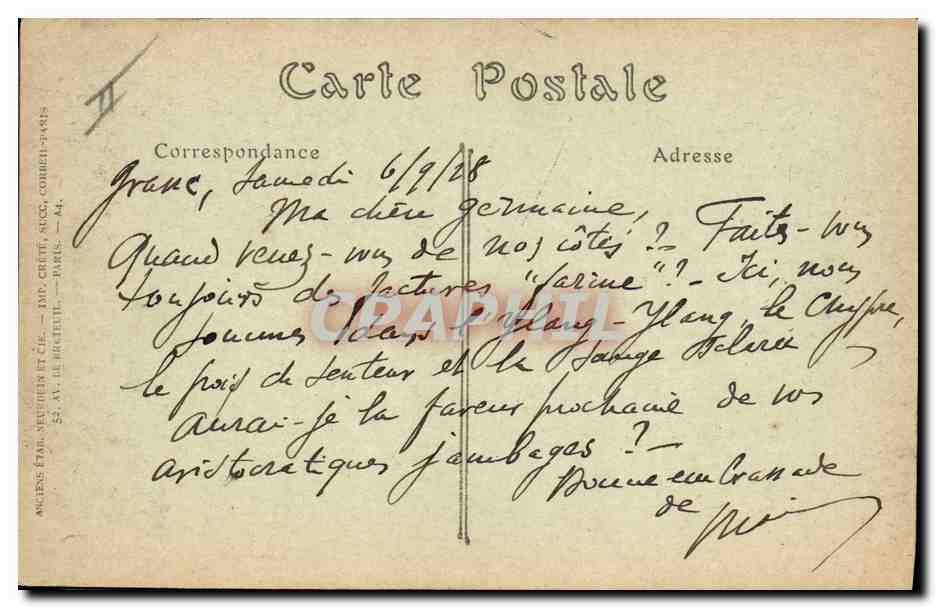 Carte Postale
Correspondance
Adresse
II
Grasse, Samedi 6/9/28
Ma chère Germaine,
Quand venez-vous de nos côtés ? - Faites-vous
toujours de factures "farine" ? - Ici, nous
sommes dans l'Ylang-Ylang, le Chypre,
le pois de senteur et la sauge sclarée
Aurai-je la faveur prochaine de vos
aristocratiques jambages ? -
Bonne embrassade
de
ANCIENS ÉTAB. NEURDEIN ET CIE. — IMP. CRÉTÉ, SUCC, CORBEIL-PARIS
52, AV. DE BRETEUIL. — PARIS. — A4.
CPAPHIL